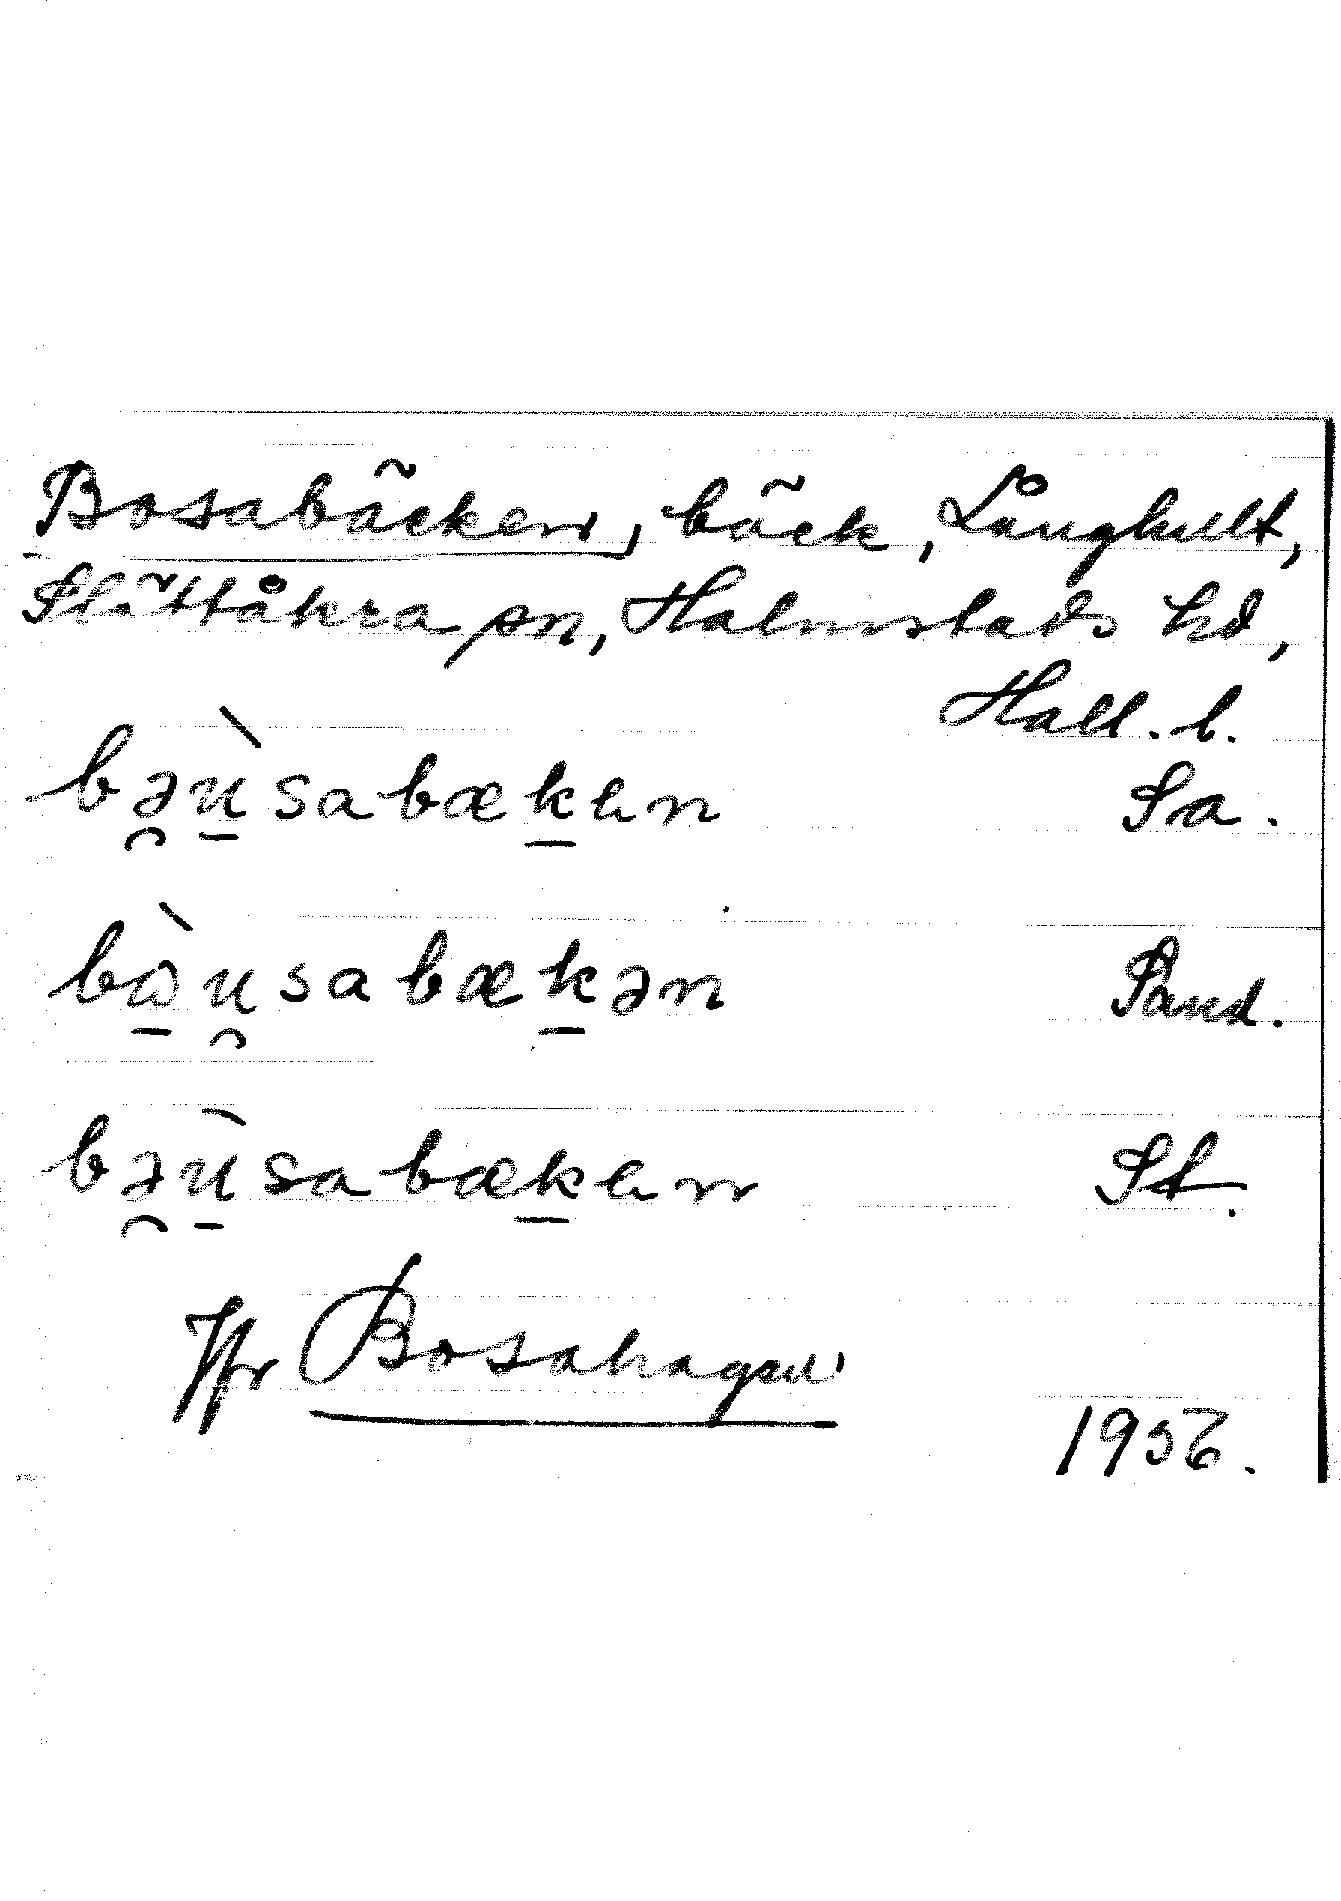 Bosabäcken, bäck, Långhult,
Slättåkra sn, Halmstads hd,
Hall. l.
bə̯ù̱sabæḵen Sa.
bò̱u̯sabæḵən Sand.
bə̯ù̱sabæḵen St.
Jfr Bosahagen
1956.